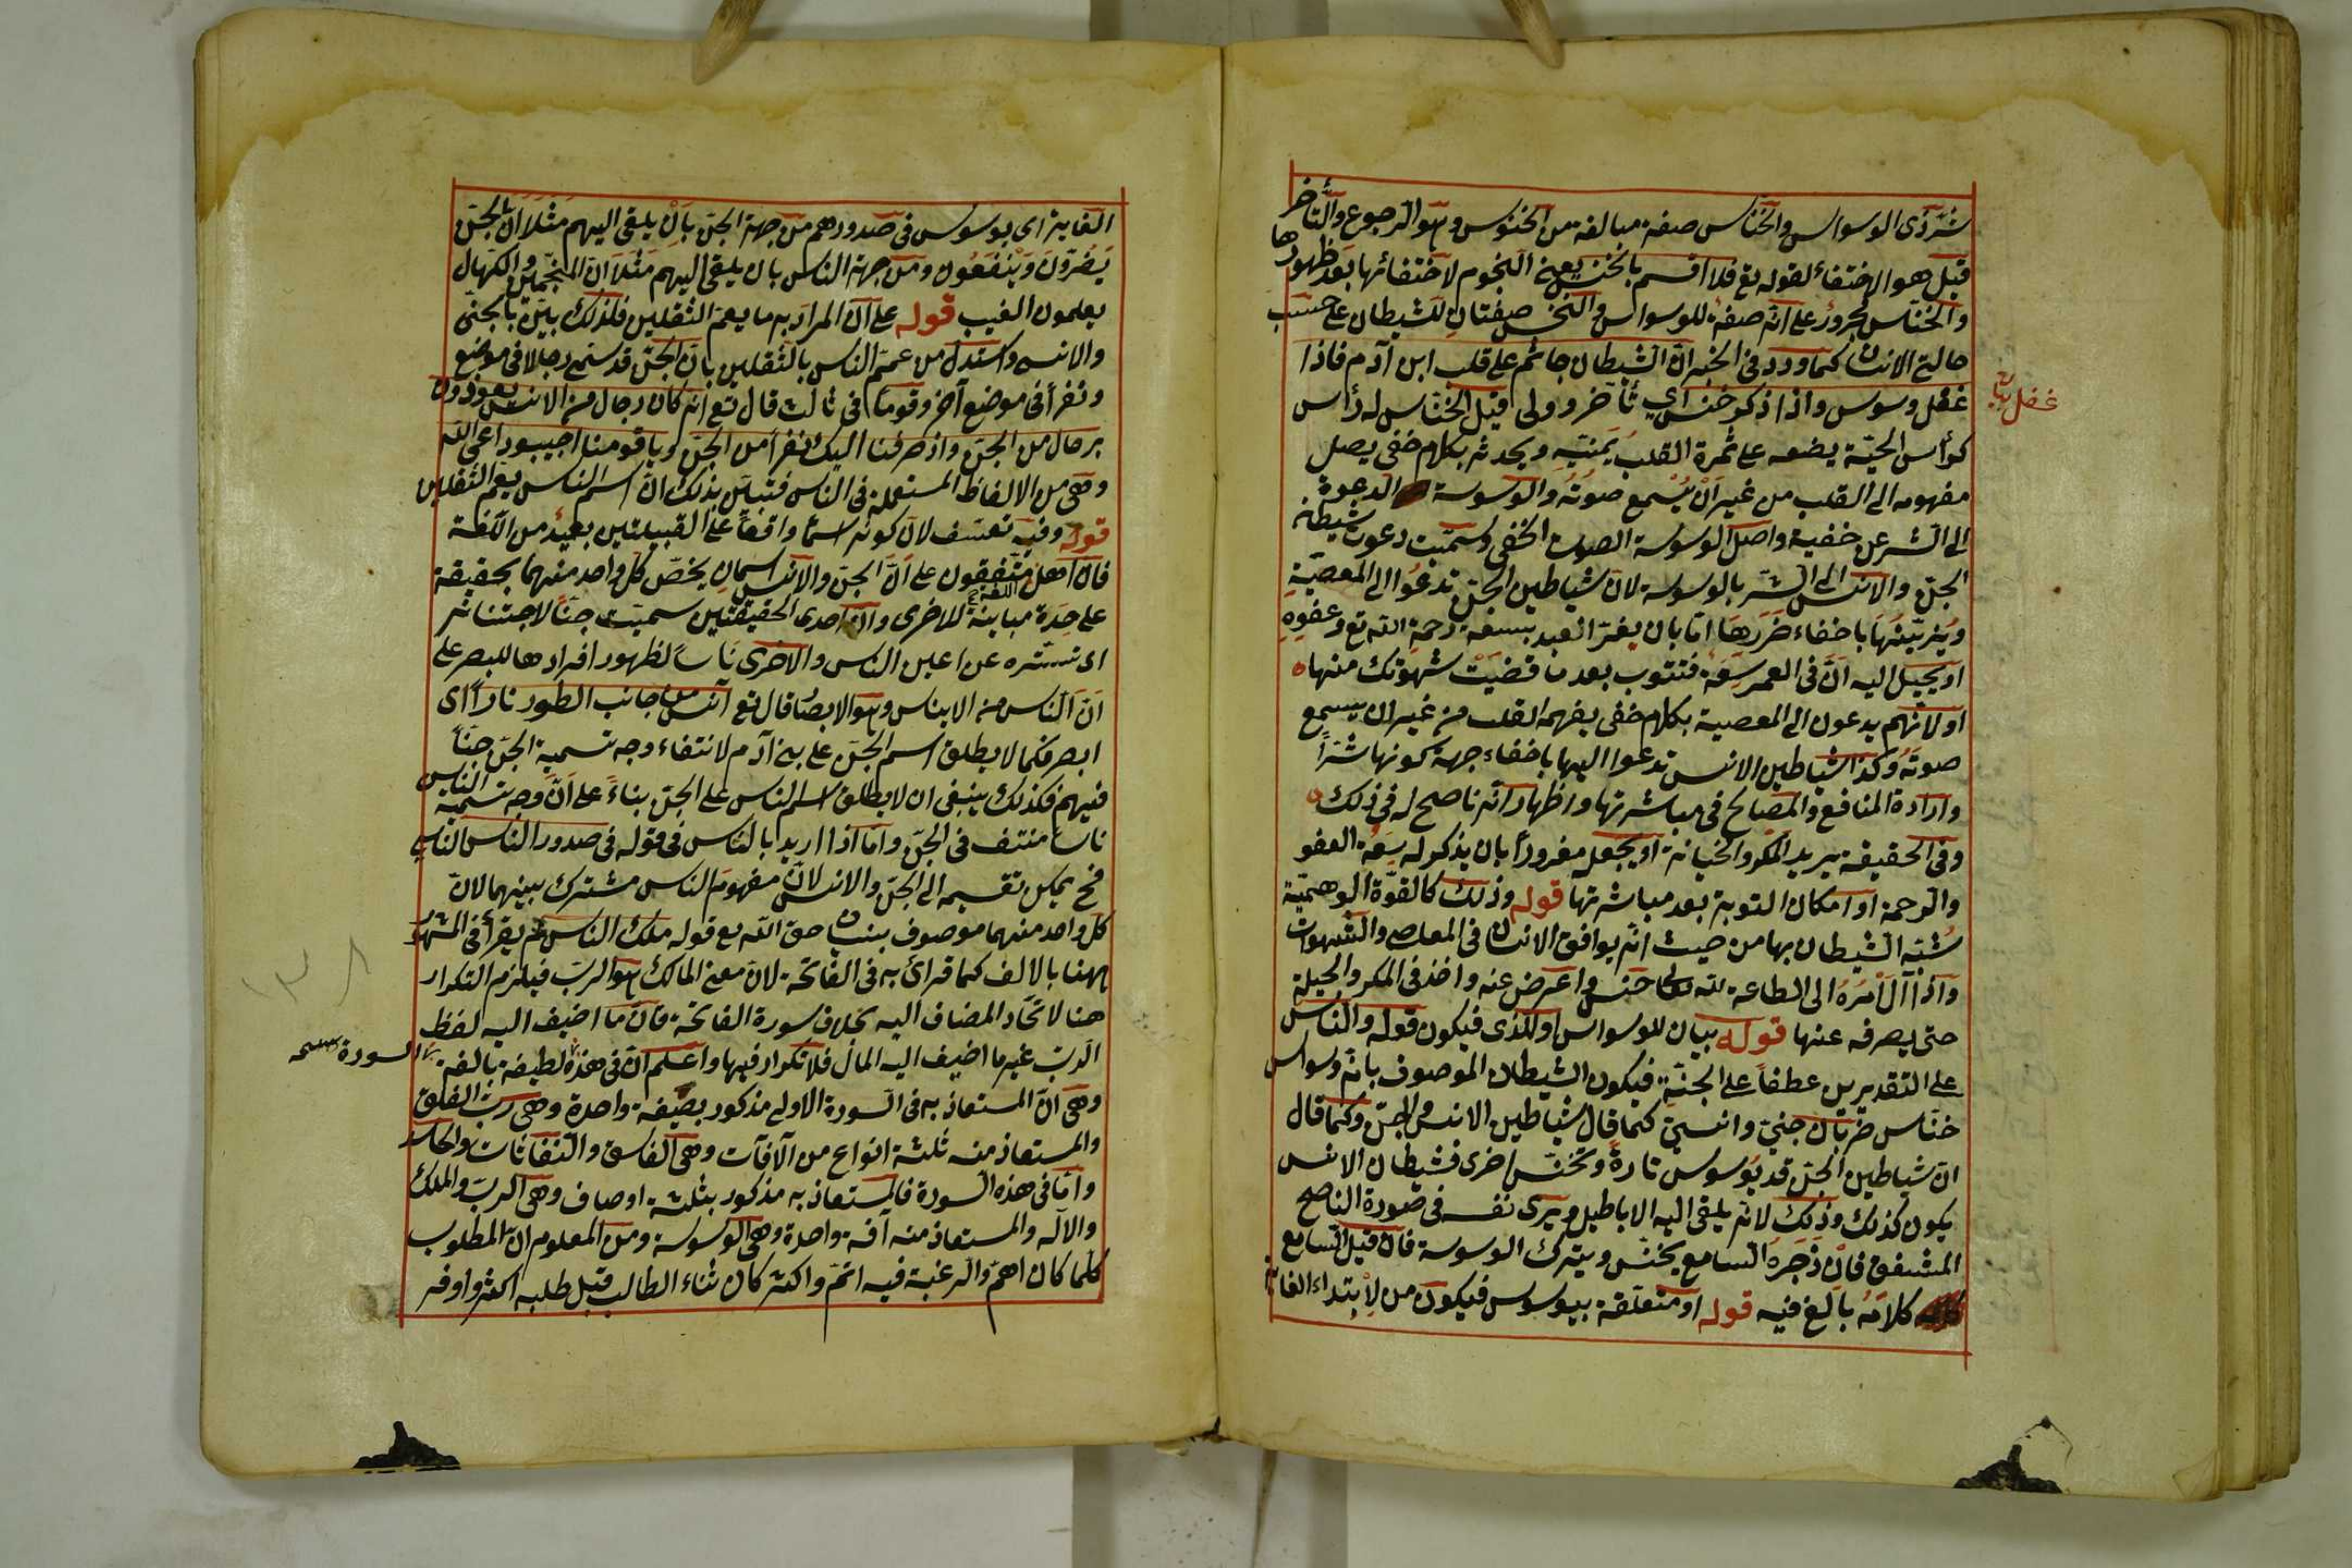 شر ذى الوسواس والخناس صفة مبالغة من الخنوس وهو الرجوع والتأخر
قيل هو الاختفاء لقوله تع فلا اقسم بالخنس يعنى النجوم لاختفائها بعد ظهورها
والخناس مجرور على انه صفة للوسواس والنخس صفتان للشيطان على حسب
حالتى الانسان كما ورد فى الخبر ان الشيطان جاثم على قلب ابن آدم فاذا
غفل وسوس واذا ذكر خنس اي تأخر وولى قيل الخناس له رأس
كرأس الحية يضعه على ثمرة القلب يمنيه ويحدثه بكلام خفى يصل
مفهومه الى القلب من غير ان يسمع صوته والوسوسة الدعوة
الى الشر عن خفية واصل الوسوسة الصوت الخفى وسميت دعوت شيطان
الجن والانس الى الشر بالوسوسة لان شياطين الجن تدعوا الى المعصية
ويزينها باخفاء ضررها اما بان يغر العبد بسعة رحمة الله تع وعفوه
او يخيل اليه ان فى العمر سعة فتتوب بعد ما قضيت شهوتك منها
او لانهم يدعون الى المعصية بكلام خفى يفهمه القلب من غير ان يسمع
صوته وكذا شياطين الانس تدعوا اليها باخفاء جهة كونها شرا
وارادة المنافع والمصالح فى مباشرتها واظهار انه ناصح له فى ذلك
وفى الحقيقة يريد المكر والخيانة او يجعل مغرورا بان يذكر له سعة العفو
والرحمة او امكان التوبة بعد مباشرتها قوله وذلك كالقوة الوهمية
شبه الشيطان بها من حيث انه يوافق الانسان فى المعاصى والشهوات
واذا آل امره الى الطاعة لله تعالى خنس واعرض عنه واخذ فى المكر والحيلة
حتى يصرفه عنها قوله بيان للوسواس او للذى فيكون قوله والناس
على التقديرين عطفا على الجنة فيكون الشيطان الموصوف بانه وسواس
خناس ضربان جنى وانسى كما قال شياطين الانس والجن وكما قال
ان شياطين الجن قد يوسوس تارة وتخنس اخرى فشيطان الانس
يكون كذلك وذلك لانه يلقى اليه الاباطيل ويرى نفسه فى صورة الناصح
المشفق فان زجره السامع يخنس ويترك الوسوسة فان قبل السامع
كلامه بالغ فيه قوله او متعلقة بيوسوس فيكون من لابتداء الغاية
غفل
الغاية اى يوسوس فى صدورهم من جهة الجن بان يلقى اليهم مثلا ان الجن
يضرون وينفعون ومن جهة الناس بان يلقى اليهم مثلا ان المنجمين والكهال
يعلمون الغيب قوله على ان المراد به ما يعم الثقلين فلذلك بين بالجن
والانس واستدل من عمم الناس بالثقلين بان الجن قد سمى رجالا فى موضع
ونفرا فى موضع آخر وقوما فى ثالث قال تع انه كان رجال من الانس يعوذون
برجال من الجن واذ صرفنا اليك نفرا من الجن ويا قومنا اجيبوا داعى الله
وهى من الالفاظ المستعملة فى الناس فتبين بذلك ان اسم الناس يعم الثقلين
قوله وفيه تعسف لان كونه اسما واقعا على القبيلتين بعيد من اللغة
فان اهل اللغة متفقون على ان الجن والانس اسمان يخص كل واحد منهما بحقيقة
على حدة مباينة للاخرى وان احدى الحقيقتين سميت جنا لاجتنانه
اى تستره عن اعين الناس والاخرى ناسا لظهور افرادها للبصر على
ان الناس من الايناس وهو الابصار قال تع آنس من جانب الطور نارا اى
ابصر فكما لا يطلق اسم الجن على بنى آدم لانتفاء وجه تسمية الجن جنا
فيهم فكذلك ينبغى ان لا يطلق اسم الناس على الجن بناء على ان وجه تسمية الناس
ناسا منتف فى الجن واما اذا اريد بالناس فى قوله فى صدور الناس الناسى
فح يمكن تقسيمه الى الجن والانس لان مفهوم الناس مشترك بينهما لان
كل واحد منهما موصوف بنسيان حق الله تع قوله ملك الناس لم يقرأ فى المشهور
ههنا بالالف كما قرائ به فى الفاتحة لان معنى المالك هو الرب فيلزم التكرار
هنا لاتحاد المضاف اليه بخلاف سورة الفاتحة فان ما اضيف اليه لفظ
الرب غير ما اضيف اليه المال فلا تكرار فيها واعلم ان فى هذه لطيفة بالغة
السورة
وهى ان المستعاذ به فى السورة الاولى مذكور بصفة واحدة وهى رب الفلق
والمستعاذ منه ثلثة انواع من الآفات وهى الغاسق والنفاثات والحاسد
واما فى هذه السورة فالمستعاذ به مذكور بثلثة اوصاف وهى الرب والملك
والاله والمستعاذ منه آفة واحدة وهى الوسوسة ومن المعلوم ان المطلوب
كلما كان اهم والرغبة فيه اتم واكثر كان ثناء الطالب قبل طلبه اكثر واوفر
١٣٨